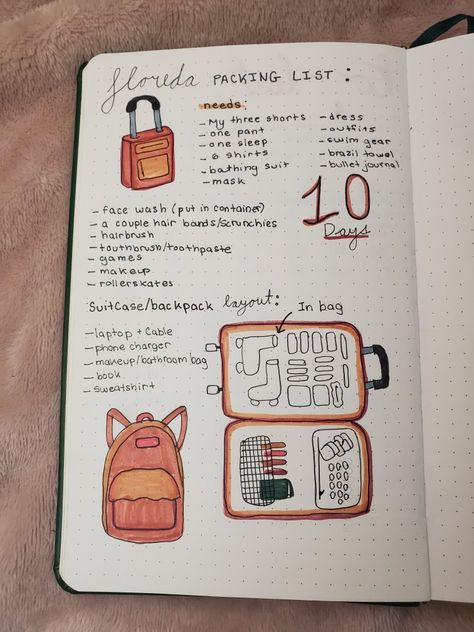 floreda PACKING LIST :
needs:
- My three shorts
- one pant
- one sleep
- 6 shirts
- bathing suit
- mask
- dress
- outfits
- swim gear
- brazil towel
- bullet journal
10
Days
- face wash (put in container)
- a couple hair bands/scrunchies
- hairbrush
- touthbrush/toothpaste
- games
- makeup
- rollerskates
SuitCase/backpack layout:
In bag
- laptop + Cable
- phone charger
- makeup/bathroom bag
- book
- sweatshirt